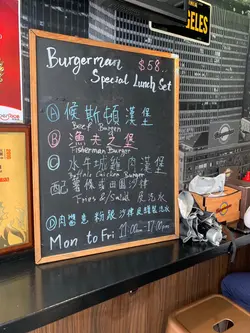 ELES
Burgerman $58..
Special Lunch Set
Ⓐ 候斯頓漢堡
Beef Burger
Ⓑ 漁夫之堡
Fisherman Burger
Ⓒ 水牛城雞肉漢堡
Buffalo Chicken Burger
配 薯條或田園沙律
Fries &/Salad 及汽水
Ⓓ 肉醬 粉 沙律 汽水
Mon to Fri 11:00am-17:00pm